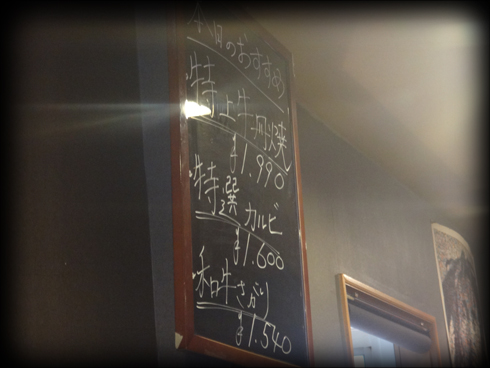 今日のおすすめ
・特上牛丹焼
¥1.990
・特選カルビ
¥1.600
・和牛さがり
¥1.540